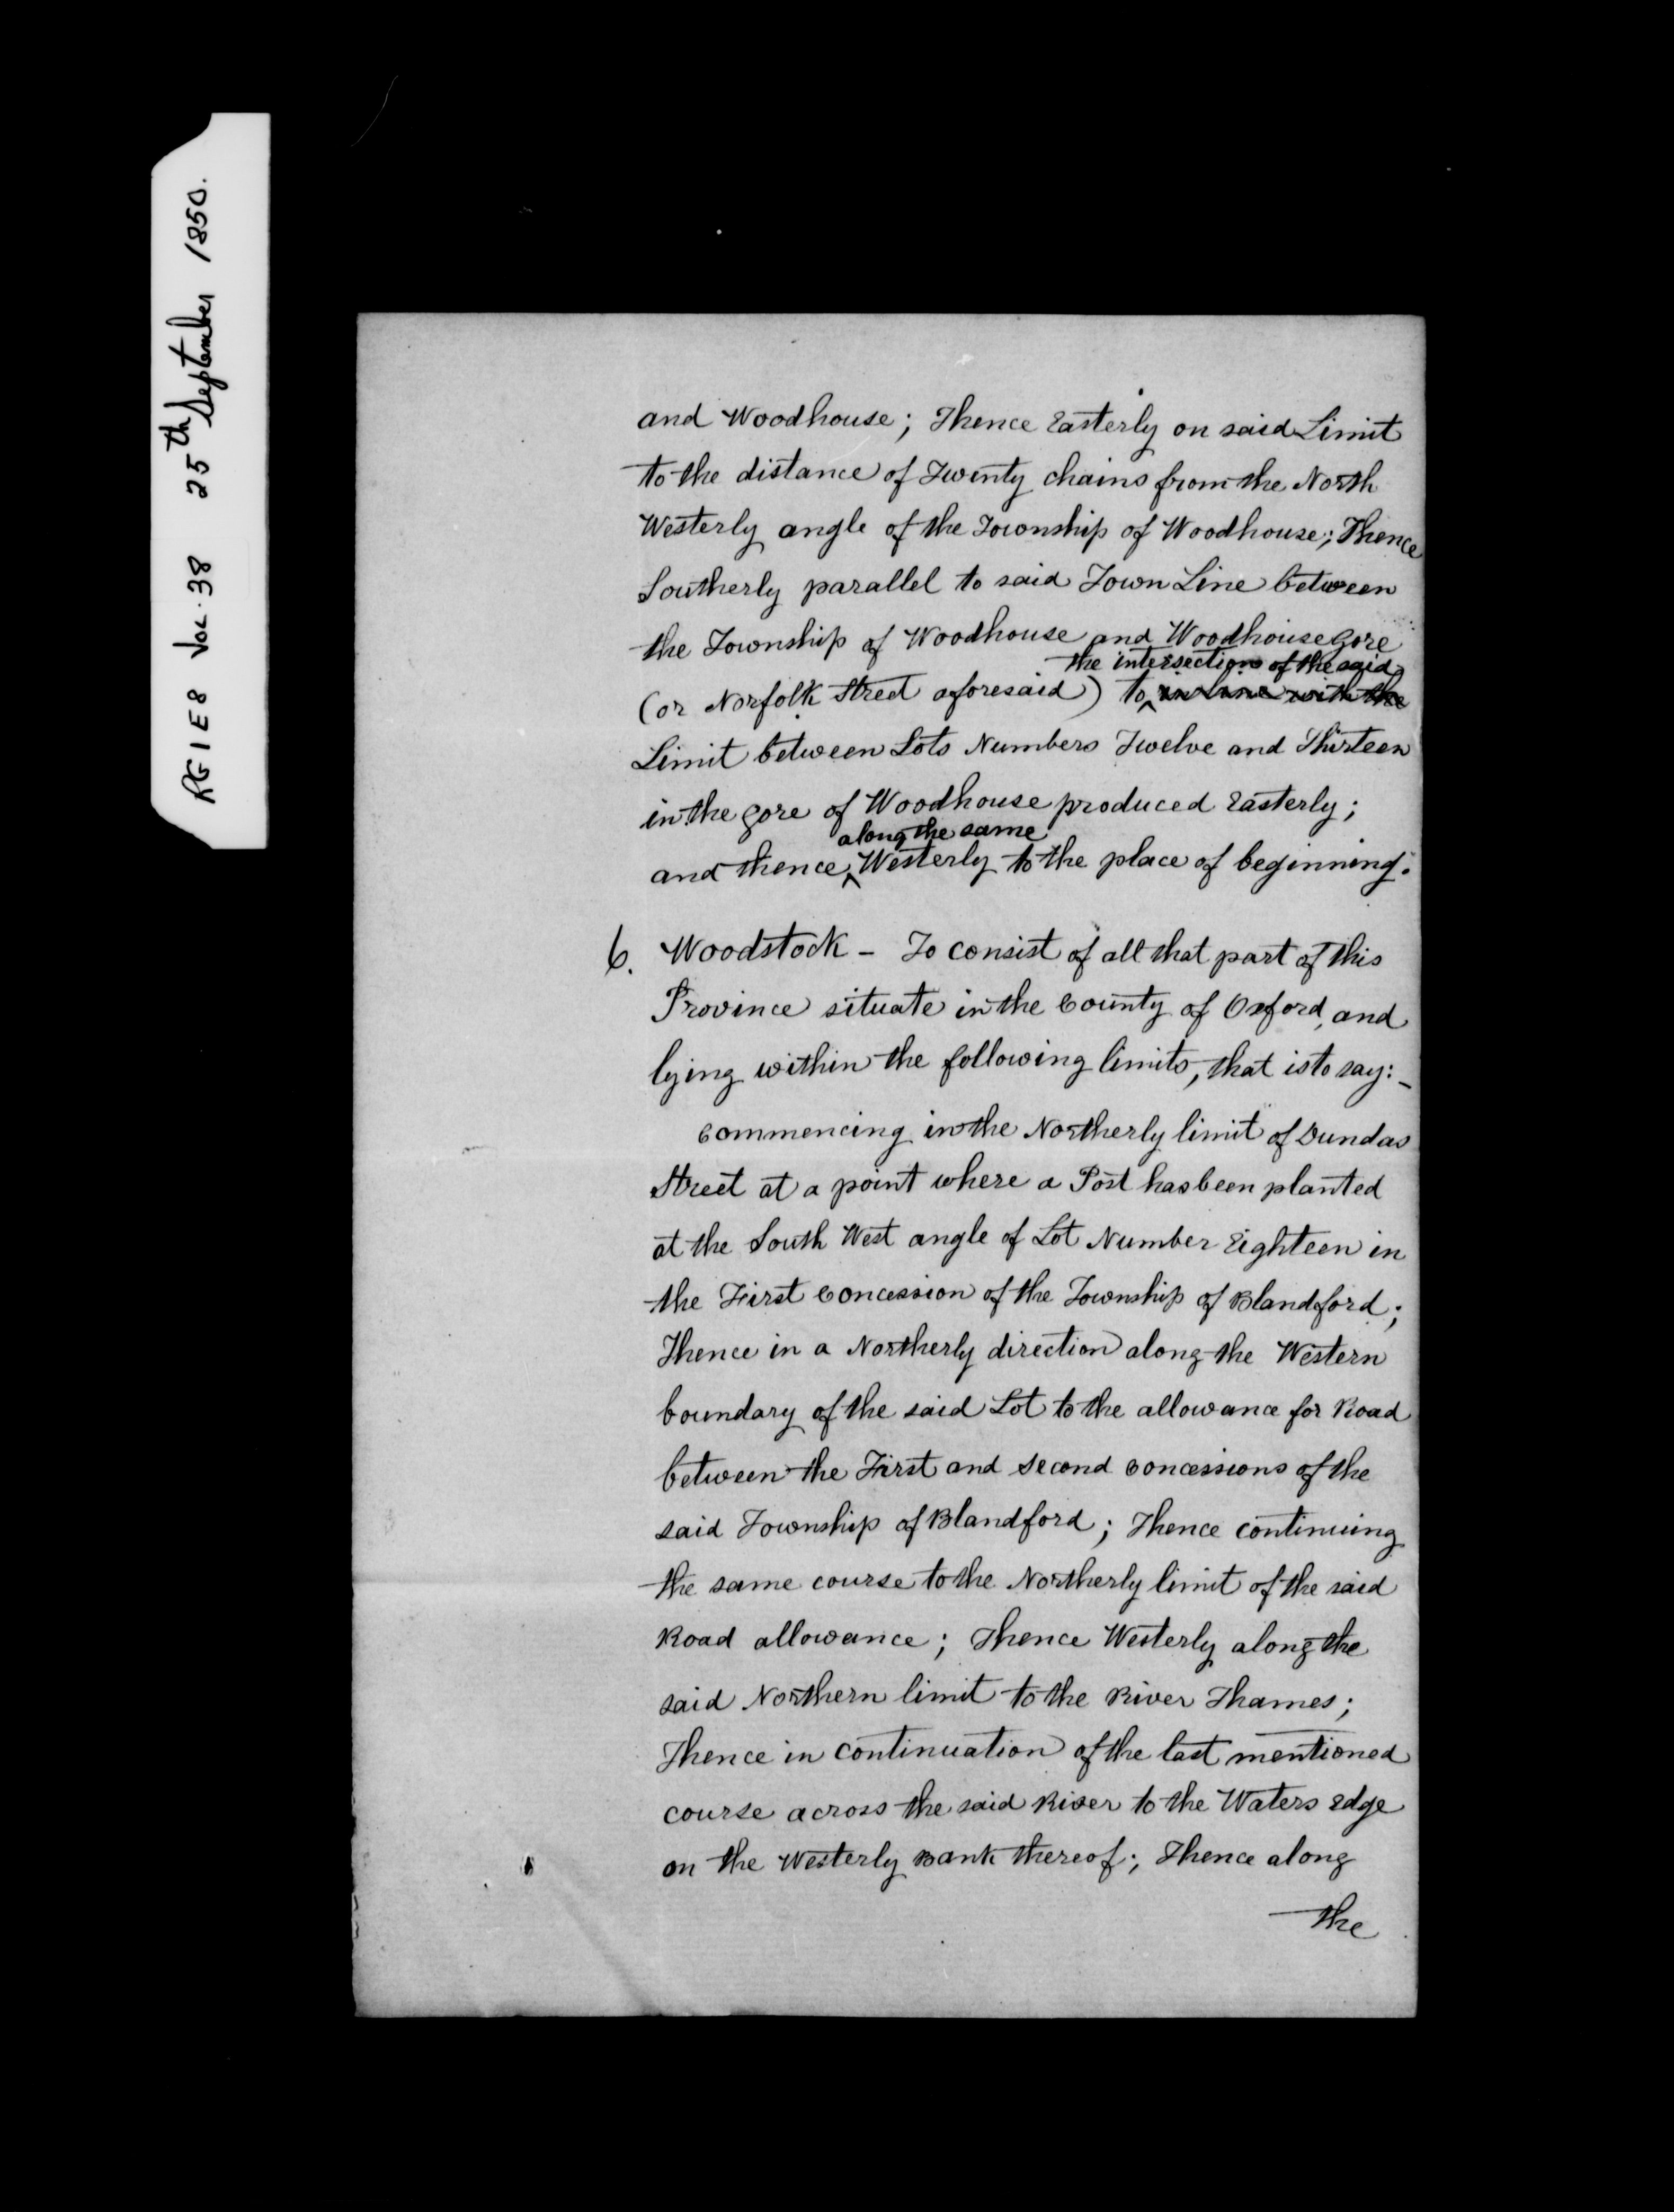 RG 1 E 8 Vol. 38 25th September 1850.
and Woodhouse; Thence Easterly on said Limit
to the distance of Twenty chains from the North
Westerly angle of the Township of Woodhouse; Thence
Southerly parallel to said Town Line between
the Township of Woodhouse and Woodhouse gore
the intersection of the said
(or Norfolk Street aforesaid) to ^ in line with the
Limit between Lots Numbers Twelve and Thirteen
in the gore of Woodhouse produced Easterly;
along the same
and thence ^ Westerly to the place of beginning.
6. Woodstock - To consist of all that part of this
Province situate in the County of Oxford, and
lying within the following limits, that is to say:-
Commencing in the Northerly limit of Dundas
Street at a point where a Post has been planted
at the South West angle of Lot Number Eighteen in
the First Concession of the Township of Blandford;
Thence in a Northerly direction along the Western
boundary of the said Lot to the allowance for Road
between the First and Second Concessions of the
said Township of Blandford; Thence continuing
the same course to the Northerly limit of the said
Road allowance; Thence Westerly along the
said Northern limit to the River Thames;
Thence in continuation of the last mentioned
course across the said River to the Waters edge
on the Westerly Bank thereof; Thence along
the